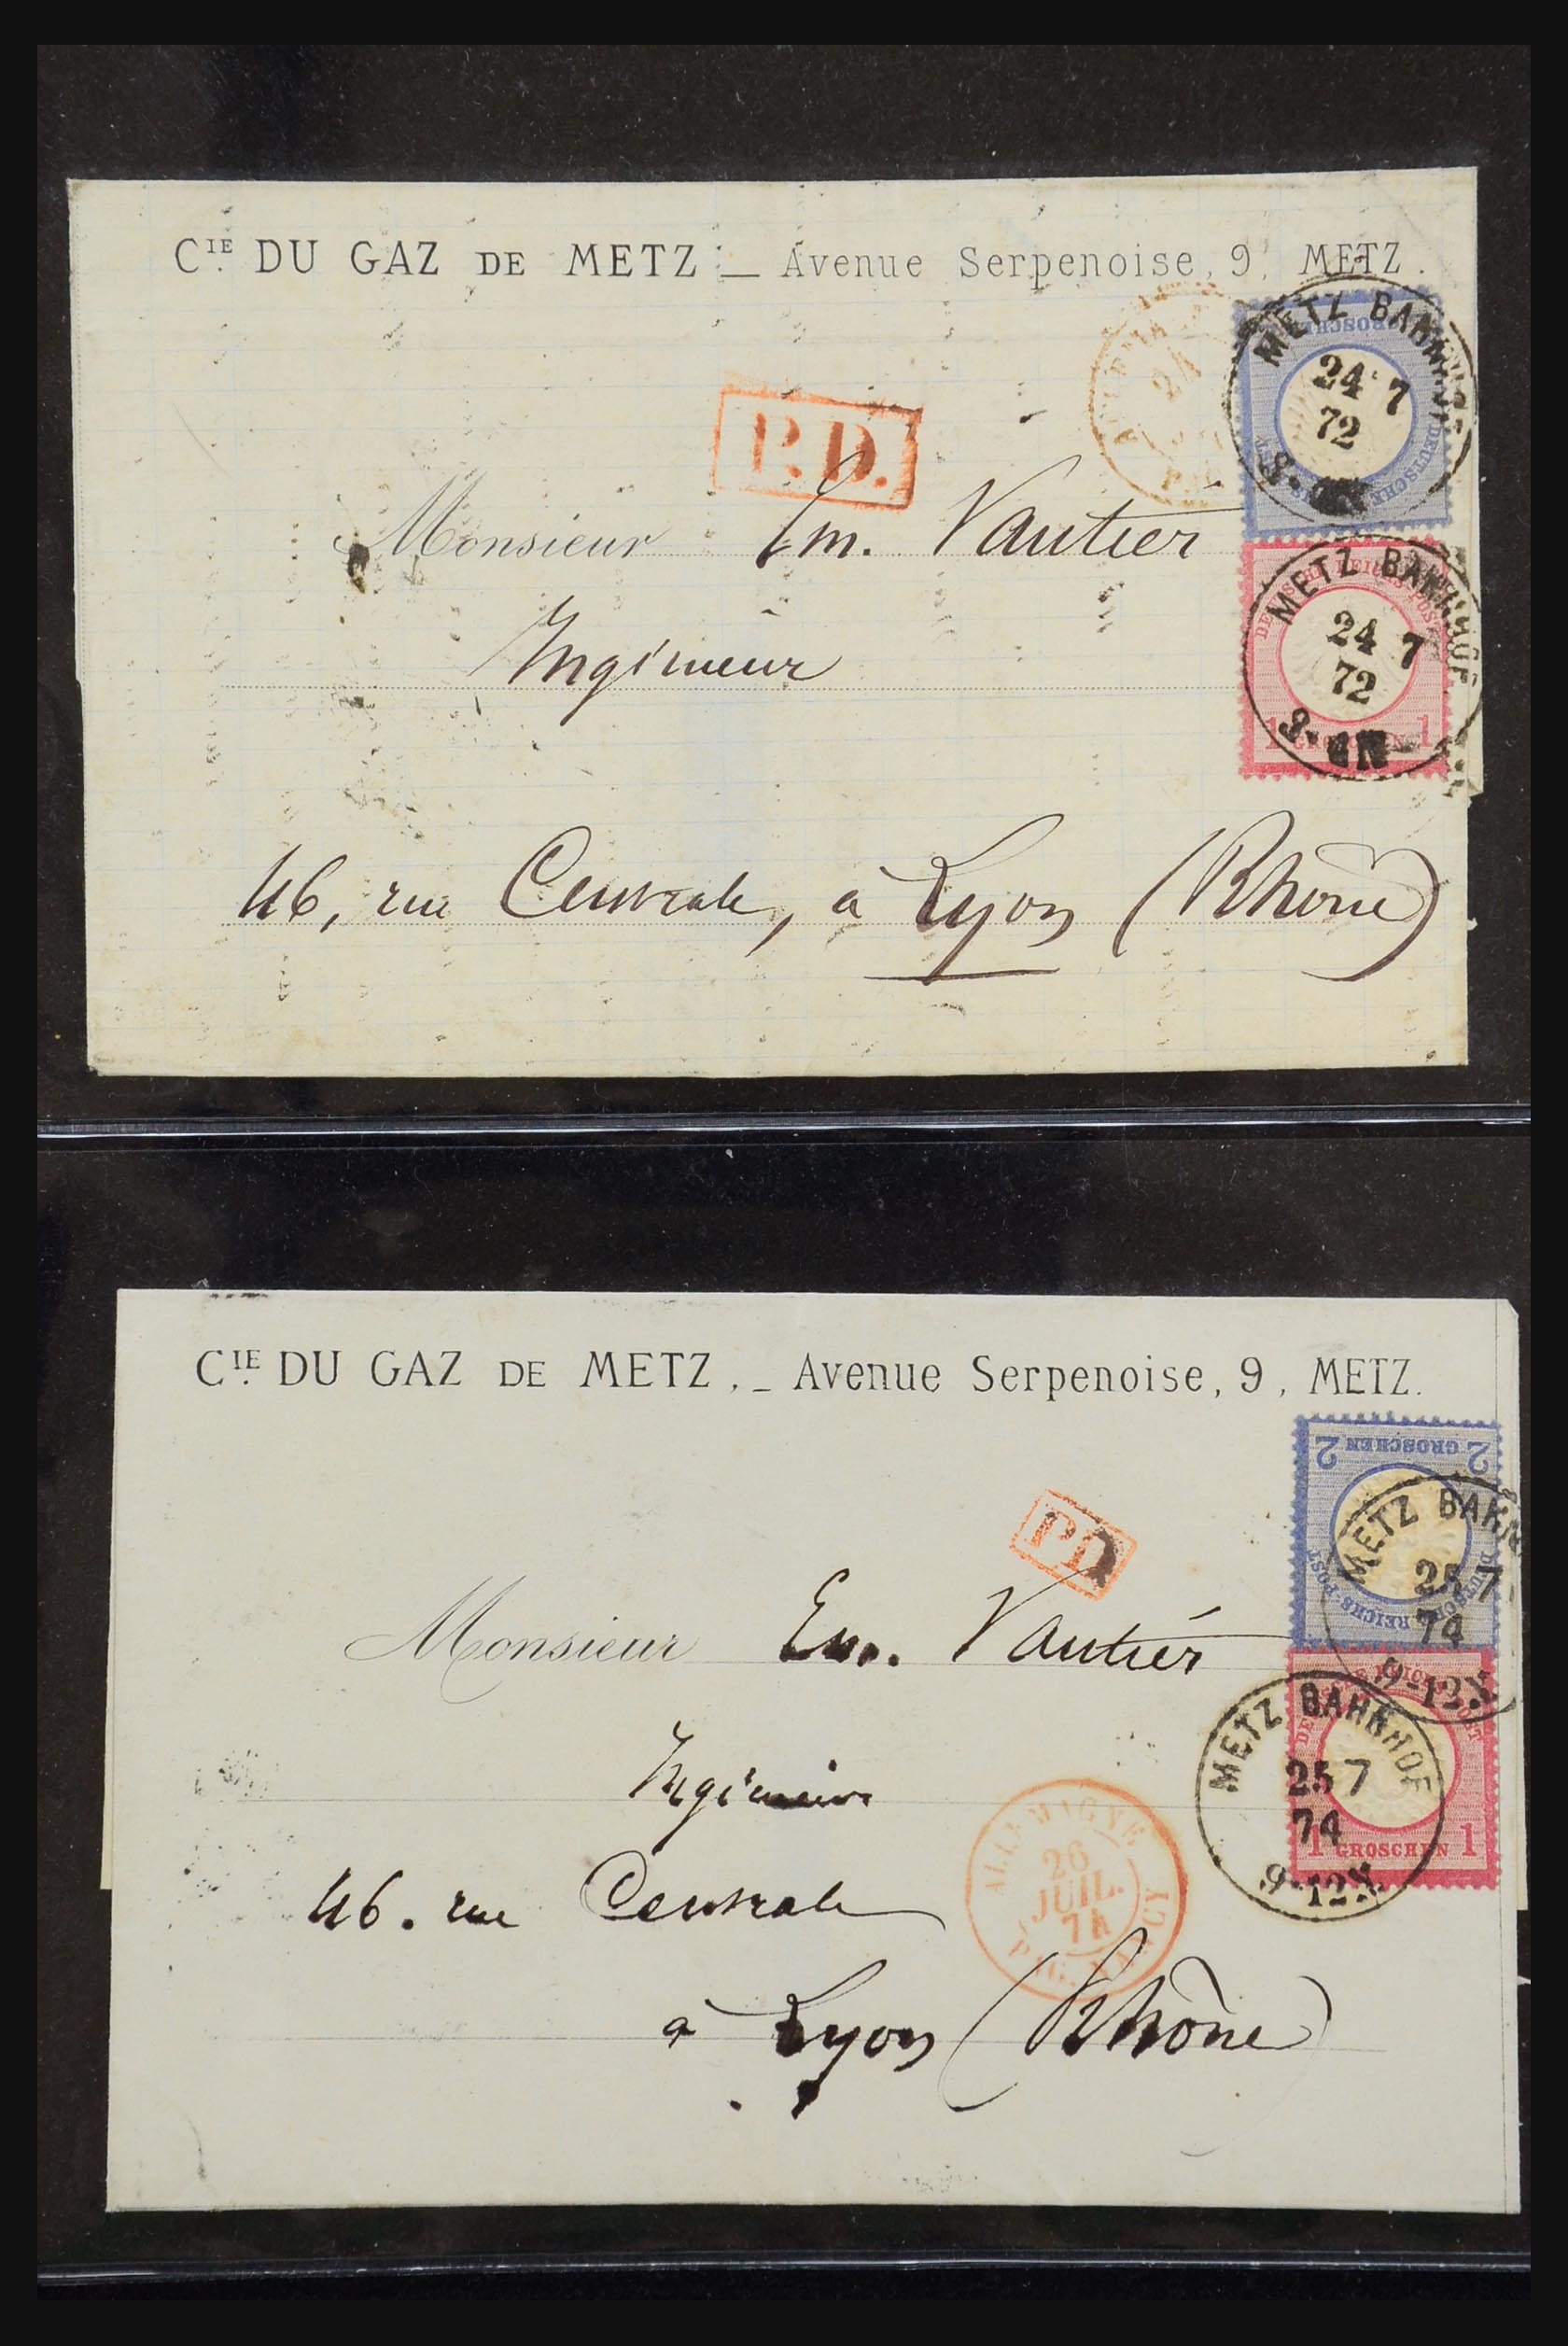 CIE DU GAZ DE METZ _ Avenue Serpenoise, 9, METZ.
GROSCHEN
DEUTSCHE
METZ BAHNHOF
24 7
72
P.D.
24
Monsieur Em. Vautier
REICHS-POST
METZ BAHNHOF
24 7
72
1 GROSCHEN 1
Ingénieur
46, rue Centrale, à Lyon (Rhône)
CIE DU GAZ DE METZ. _ Avenue Serpenoise, 9, METZ.
2 GROSCHEN 2
DEUTSCHE REICHS-POST
METZ BAHN
25 7
74
9-12 V.
PD
Monsieur Em. Vautier
METZ BAHNHOF
25 7
74
9-12 V.
1 GROSCHEN 1
Ingénieur
ALLEMAGNE
26
JUIL.
74
NANCY
46. rue Centrale
à Lyon (Rhône)